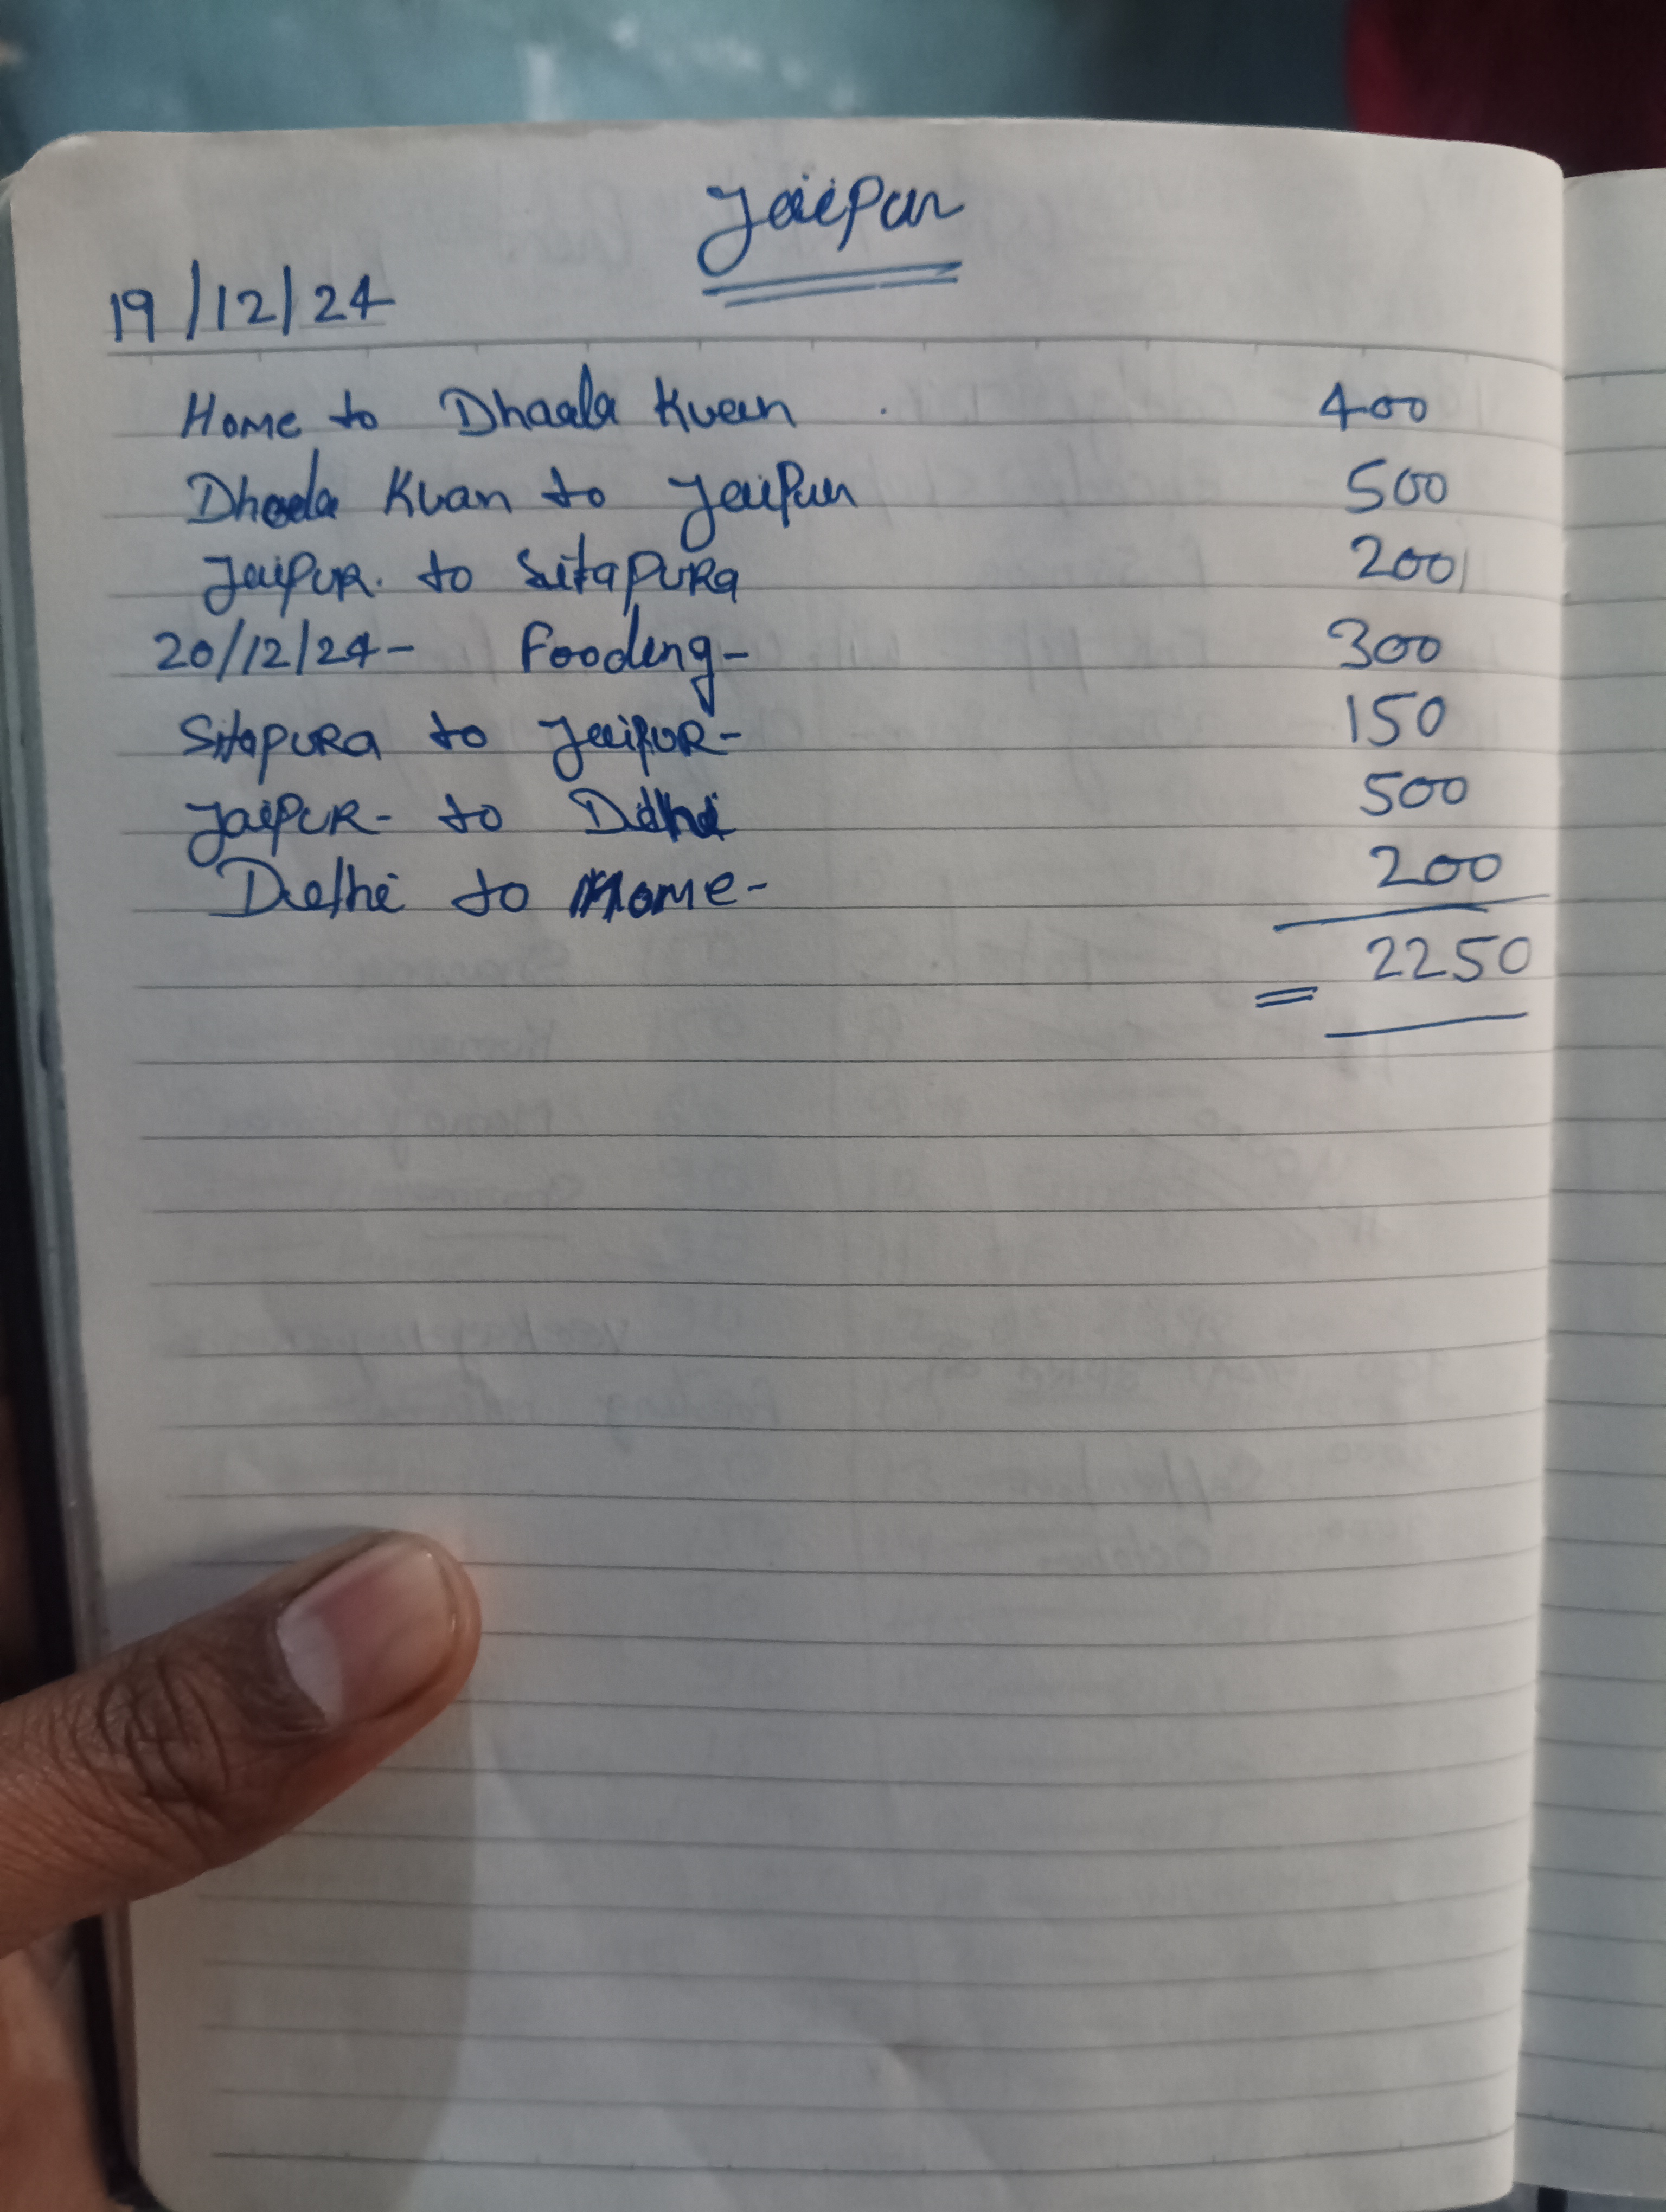 Jaipur
19/12/24
Home to Dhaula Kuan 400
Dhaula Kuan to Jaipur 500
Jaipur. to SitapuRa 200
20/12/24- Fooding- 300
SitapuRa to JaipuR- 150
JaipuR- to Delhi 500
Delhi to Home- 200
= 2250